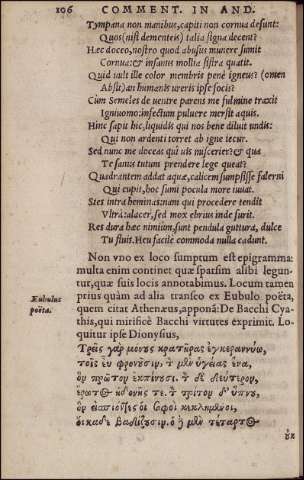 106 COMMENT. IN AND.
Tympana non manibus, capiti non cornua desunt:
Quos (nisi dementeis) talia signa decent?
Hæc doceo, nostro quod abusus munere sumit
Cornua: & insanus mollia sistra quatit.
Quid vult ille color membris penè igneus? (omen
Absit) an humanis ureris ipse socis?
Cùm Semeles de ventre parens me fulmine traxit
Ignivomo: infectum pulvere mersit aquis.
Hinc sapit hic, liquidis qui nos bene diluit undis:
Qui non ardenti torret ab igne iecur.
Sed nunc me doceas qui vis miscerier? & qua
Te sanus tutum prendere lege queat?
Quadrantem addat aquæ, calicem sumpsisse falerni
Qui cupit, hoc sumi pocula more iuvat.
Stes intra heminas: nam qui procedere tendit
Vltrà: alacer, sed mox ebrius inde furit.
Res dura hæc nimium, sunt pendula guttura, dulce
Tu fluis. Heu facilè commoda nulla cadunt.
Non vno ex loco sumptum est epigramma:
multa enim continet quæ sparsim alibi legun-
tur, quæ suis locis annotabimus. Locum tamen
prius quàm ad alia transeo ex Eubulo poëta,
Eubulus
poëta.
quem citat Athenæus, apponā: De Bacchi Cya-
this, qui mirificè Bacchi virtutes exprimit. Lo-
quitur ipse Dionysius,
Τρεῖς γὰρ μόνους κρατῆρας ἐγκεραννύω,
τοῖς εὖ φρονοῦσιν. τ̀ μὲν ὑγείας ἕνα,
ὃν πρῶτον ἐκπίνουσι. τ̀ δὲ δεύτερον,
ἔρωτος ἡδονῆς τε. τ̀ τρίτον δ' ὕπνου,
ὃν εἰσπιόντες οἱ σοφοὶ κεκλημένοι,
οἴκαδε βαδίζουσιν. ὁ ἢ μὲν τέταρτος
ὐκ